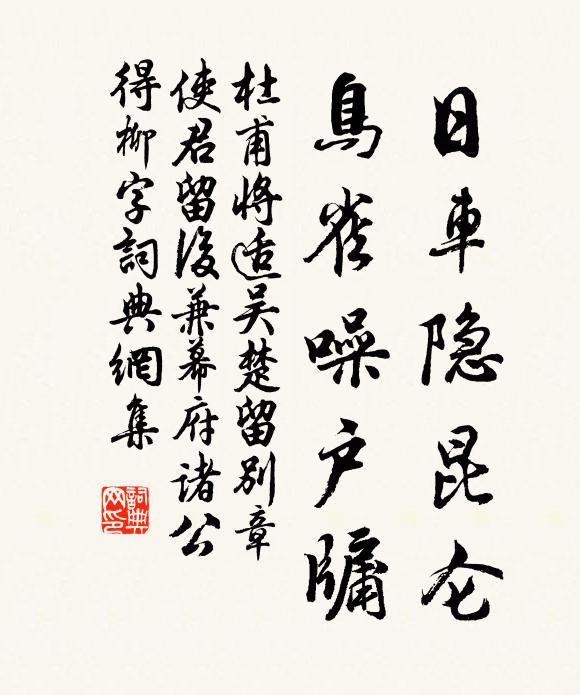 日車隐昆仑
鳥雀噪户牖
杜甫將适吴楚留别章
使君留後兼幕府诸公
得柳字詞典網集
詞典网印